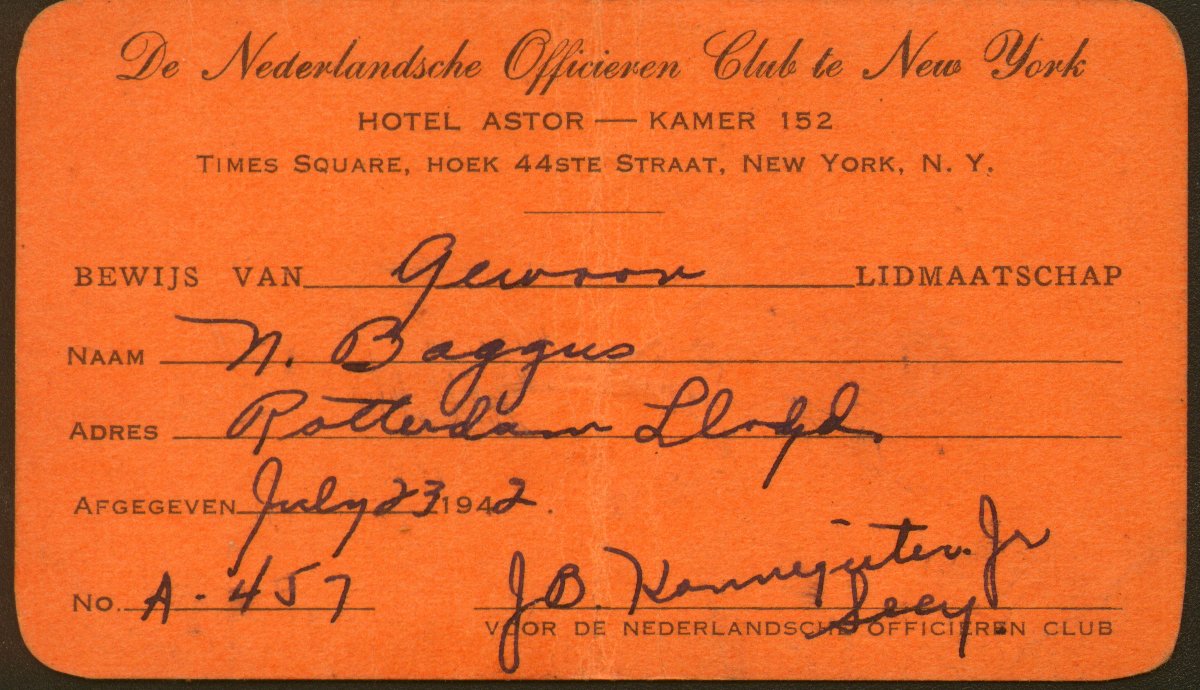 De Nederlandsche Officieren Club te New York
HOTEL ASTOR — KAMER 152
TIMES SQUARE, HOEK 44STE STRAAT, NEW YORK, N. Y.
BEWIJS VAN Gewoon LIDMAATSCHAP
NAAM N. Baggus
ADRES Rotterdam Lloyd.
AFGEGEVEN July 23 1942.
NO. A-457
J.B. Jr
Secy.
VOOR DE NEDERLANDSCHE OFFICIEREN CLUB